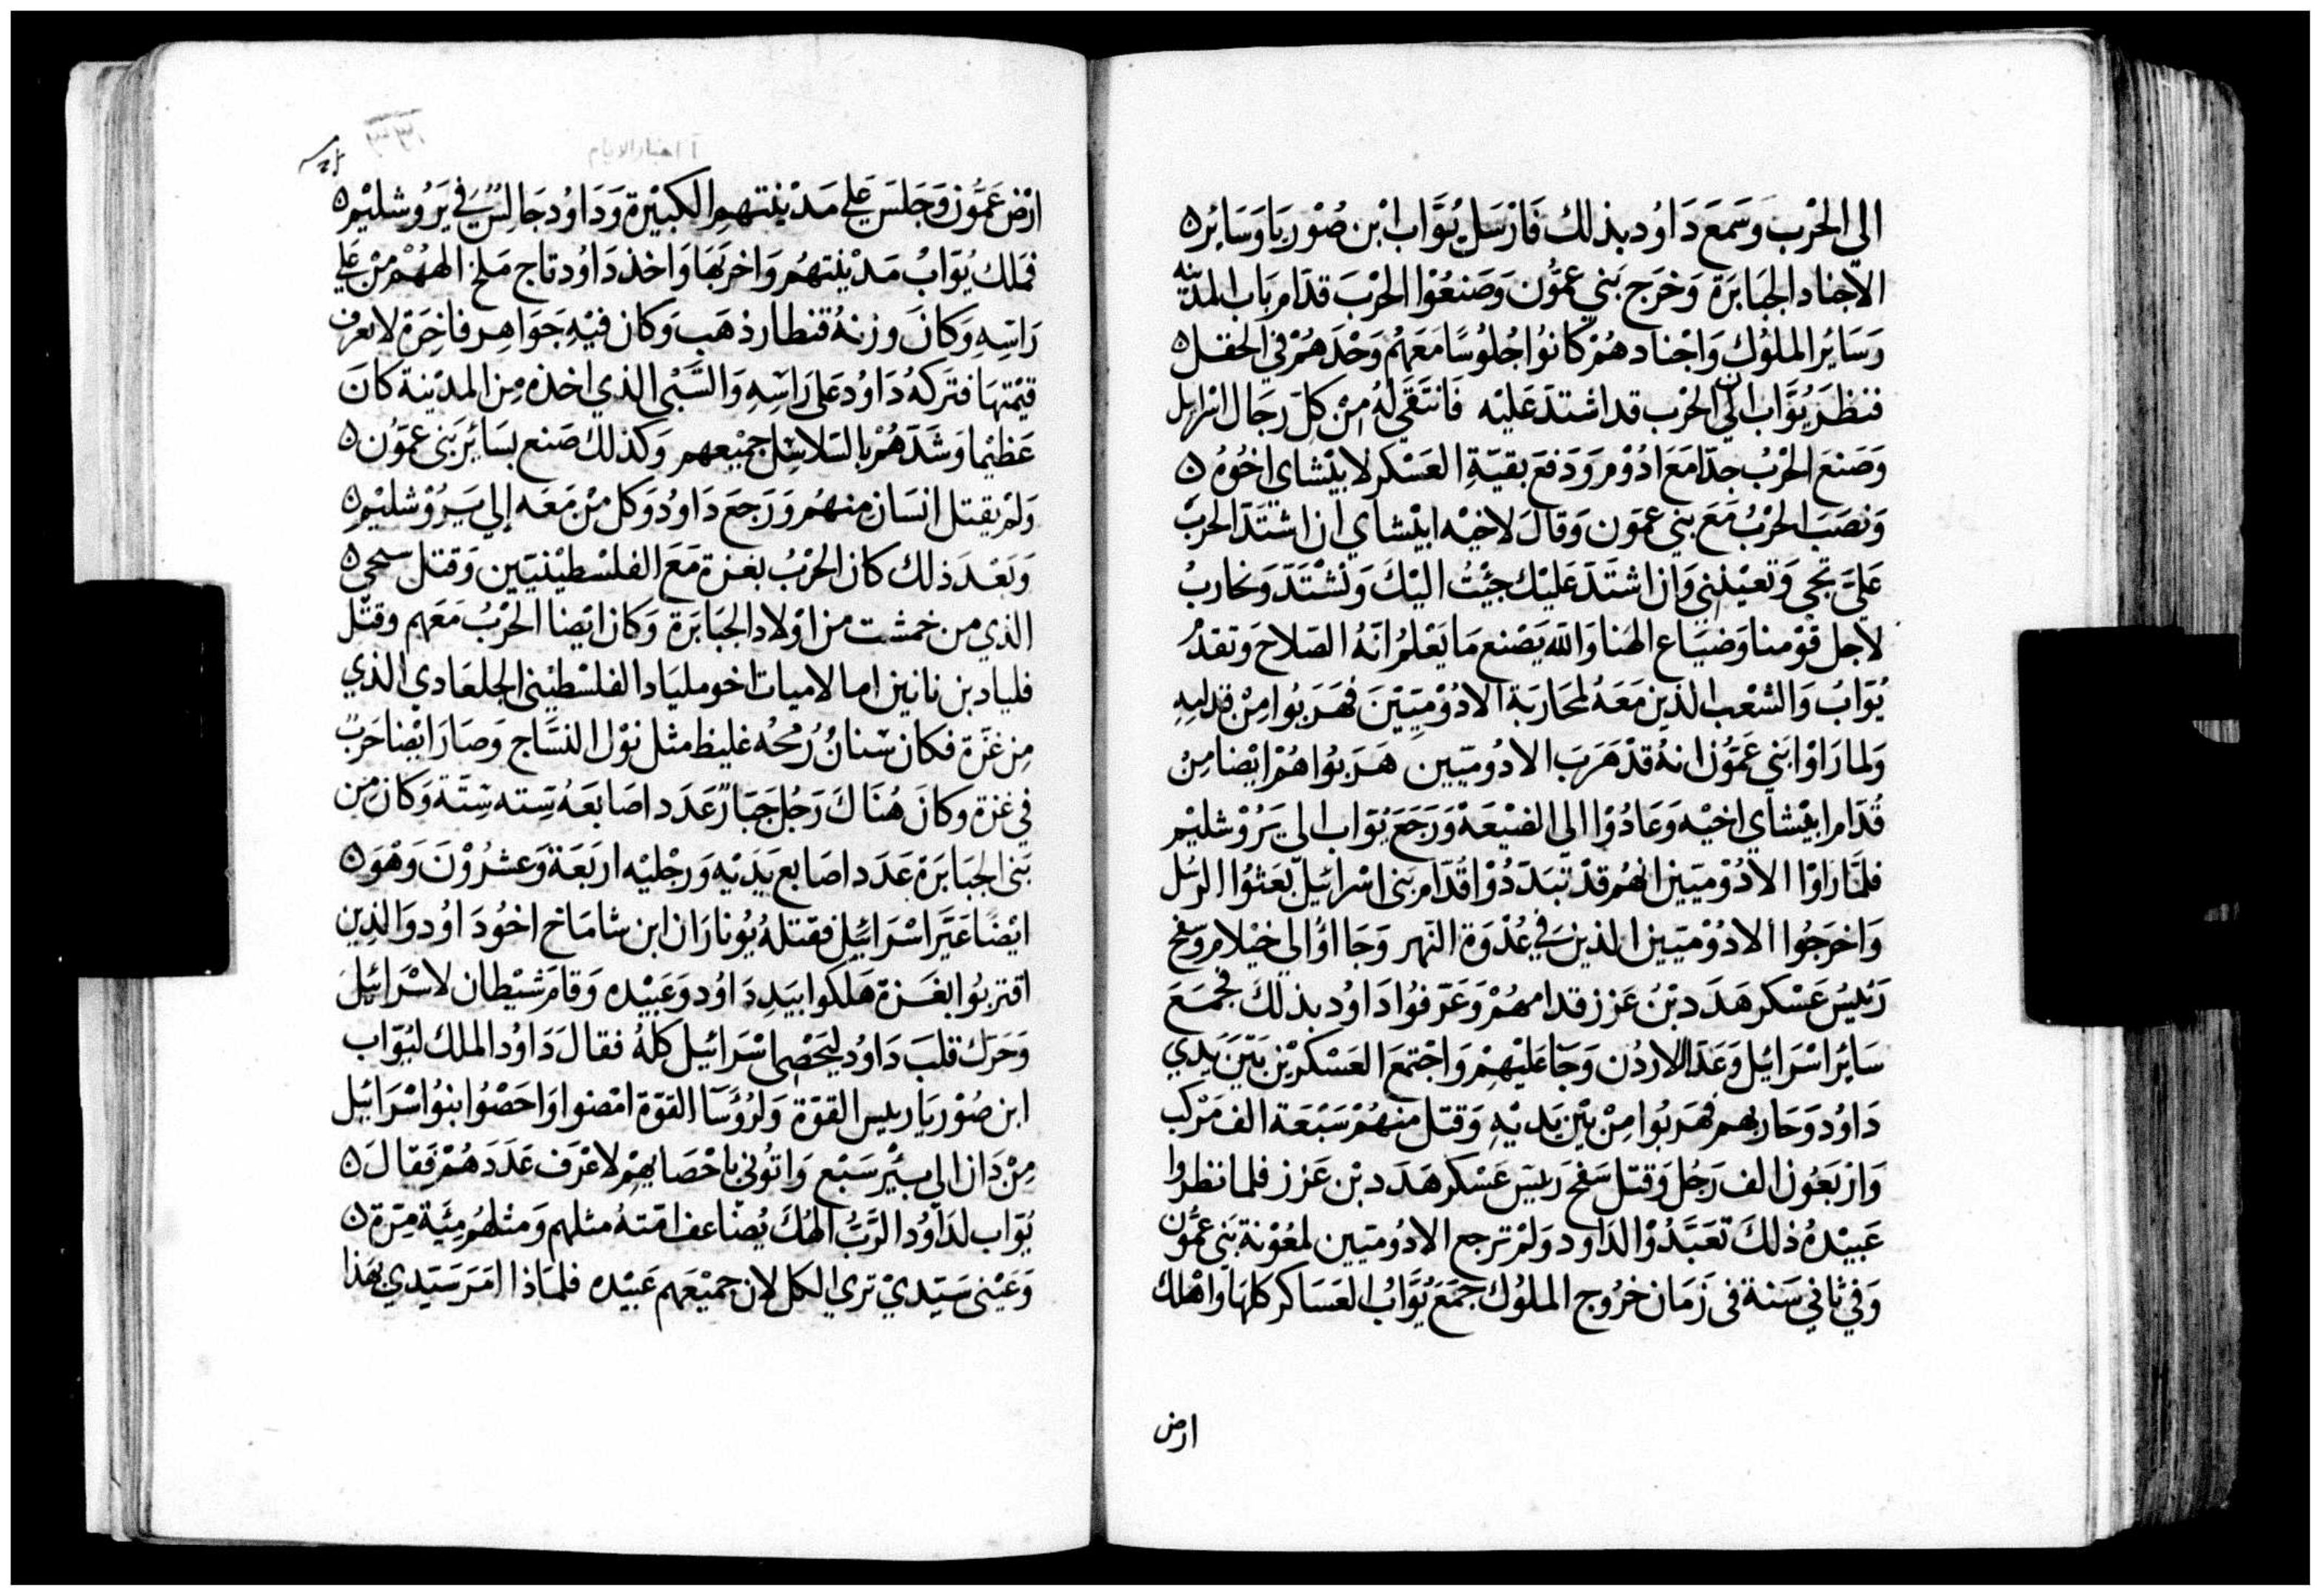 الى الحَرْبَ وَسَمَعَ دَاوُد بذلك فَارْسَل يُوَّاب ابْن صُوْريَا وَسَائِرْ
الاجناد الجبَابَرَة وَخرَج بَني عمَّون وَصَنعُوْا الحَرْبَ قدَام بَاب المدينه
وَسَائر الملوُك وَاجْناد هُمْ كانوُا جُلوُسًا مَعَهمُ وَحْدَهُمْ في الحقل
فنظرَ يُوَّاب ان الحَرْب قد اشتدَ عَليْه فَانتَقَى لهُ مِنْ كلّ رجَال اسرايل
وَصَنعَ الحَرْبُ جدّا مَعَ ادُوْم وَدَفعَ بقيَّةِ العَسْكر لابيْشاي اخُوُه
وَنصَبَ الحَرْبُ مَعَ بني عمَون وَقالَ لاخيْه ابيْشاي ان اشتَدَّ الحَربُ
عَليَّ تجي وَتعيْنني وَان اشتَدَ عَليْك جيْتُ اليْكَ وَنشْتَدَ وَنحاربُ
لاجل قوْمنا وَضيَاع الهنا وَالله يَصْنع مَا يَعْلمُ انَهُ الصَلاحَ وَتقدمُ
يُوَابُ وَالشعْب الذين مَعَهُ لمحَارَبَة الادُوْميّيْنَ فهَرَبُوا مِنْ قداميهِ
وَلما رَاوْا بَني عَمَّوُن انهُ قدْ هَرَبَ الادُوميّيين هَرَبُوا هُمْ ايْضا مِنْ
قُدّام ابيْشاي اخيْه وَعَادُوْا الى الضيْعَة وَرَجَعَ يُوَّاب الى يَرُوْشليْم
فلمَّا رَاوْا الادُوْميّين انهُم قدْ تبَدّدُوْا قُدَّام بَنى اسْرائيلَ بَعَثوُا الرسُل
وَاخرَجُوا الادُوْميّين الذينَ في عُدْوَة النَهر وَجَااوُ الى خيْلام وَسَفح
رَئيسُ عَسْكر هَدَد بْنُ عَزز قدامهُمْ وَعَرَفوُا دَاوُد بذلكَ فجمَعَ
سَائِر اسْرَائيل وَعَدّا الاردُن وَجَا عَليْهِمْ وَاجْتمعَ العَسْكرْين بَيْن يَدي
دَاوُد وَحَاربهم فهَرَبُوا مِنْ بَيْن يَديْهِ وَقتل منهُمْ سَبْعَة الف مَرْكب
وَارْبَعُون الف رَجُل وَقتل سَفح رَئيسَ عَسْكر هَدَد بْن عَزز فلما نظروا
عَبيْدهُ ذلكَ تعَبَّدُوْا لدَاود وَلمْ ترجع الادُوميّين لمعُوْنة بَني عمُّون
وَفي ثاني سَنة فى زَمَان خرُوج الملوُك جَمَع يُوَّابُ العَسَاكر كلهَا وَاهْلك
ارض
١ اخبار الايام
ارْض عَمَّوُن وَجَلسَ عَلي مَديْنتهمِ الكبيْرة وَدَاوُد جَالِسٌ في يَرُوشليْم
فملك يُوّابُ مَديْنتهُم وَاخربَهَا وَاخذ دَاوُد تاج مَلخ الههُمْ مِنْ عَلي
رَاسِهِ وَكانَ وزنهُ قنطار ذهَب وَكان فيْهِ جَوَاهِر فاخِرَة لا تعرف
قيْمتهَا فترَكهُ دَاوُد عَلى رَاسِهِ وَالسَّبْى الذي اخذه مِن المديْنة كانَ
عَظيْما وَشدَهُمْ بالسَلاسِل جميْعهم وَكذلكَ صَنع بسَائِر بَنى عمَوُن
وَلمْ يقتل انسَان مِنهُم وَرَجَعَ دَاوُد وَكل مَنْ مَعَه إلي يَرُوْشليْم
وَبَعْدَ ذلك كان الحَرْبُ بغزة مَعَ الفلسْطيْنيّين وَقتل سمحي
الذي من خمشت من اوْلاد الجبَابَرَة وَكان ايْضا الحَرْبُ مَعَهم وَقتل
فلياد بن نانين اما الاميات اخو ملياد الفلسْطيْنى الجلعَادي الذي
مِن غزَة فكان سْنانُ رُمحُه غليظ مثل نوْل النسَّاج وَصَارَ ايْضا حَرَبٌ
في غزة وَكانَ هُنَاكَ رَجُل جَبَارٌ عَدَد اصَابعَهُ سِته سِتَة وَكانَ مِن
بَنى الجبَابَرَة عَدَد اصَابع يَدَيْهِ وَرجْليْه اربَعَة وَعشرُوْنَ وَهُوَ
ايْضًا عَيَّرَ اسْرَائيْل فقتلهُ يُونارَان ابن شامَاخ اخُو دَاوُد وَالذِين
اقتربُوا بغَزة هَلكوا بيَدِ دَاوُد وَعَبيْده وَقامَ شيْطان لاسْرَائيلَ
وَحَرَك قلبَ دَاوُد ليُحْصِى اسْرَائيل كلهُ فقالَ دَاوُد الملك ليُوّاب
ابن صُوْريَا رييس القوّة وَلرُؤسَآ القوّة امْضوا وَاحَصْوُا بنوُ اسْرَائيل
مِنْ دَان الي بيْر سَبْع وَاتوُني باحْصَايهِمْ لاعْرَف عَدَدَهُمْ فقالَ
يُوّاب لدَاوُد الرَّبُ الهُكَ يُضاعف امّتهُ مثلهم وَمثلهُم مِئَة مَرَّة
وَعَيْنى سَيّديْ ترى الكل لان جميْعَهم عَبيْده فلمَاذا امَرَ سَيّدي بهَذا